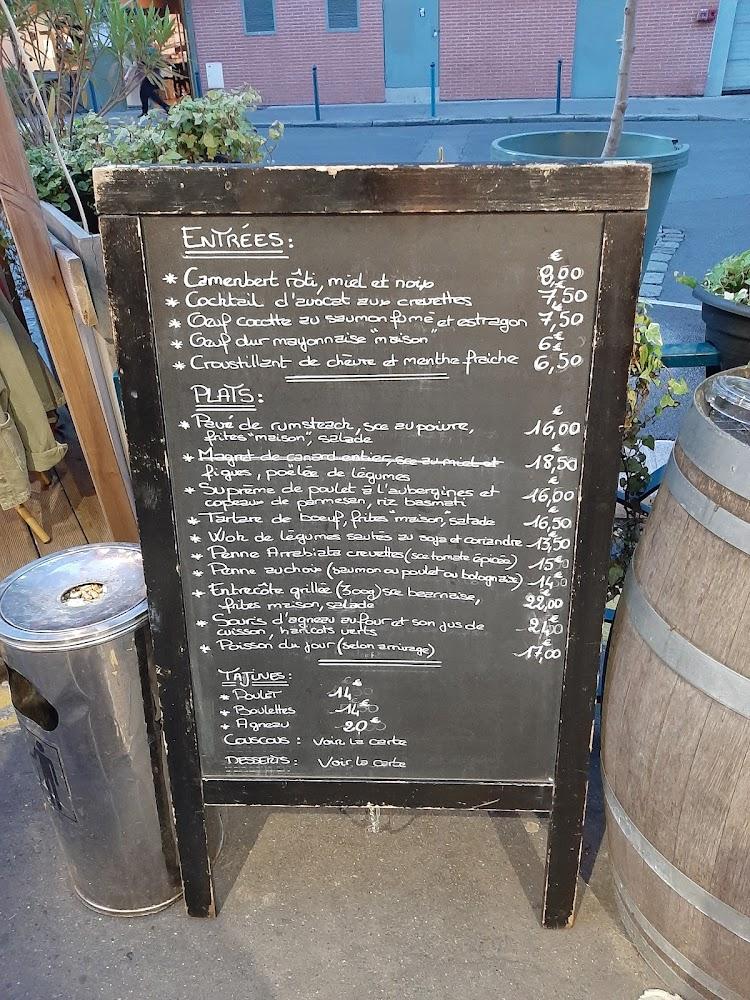 ENTRÉES:
€
* Camenbert rôti, miel et noix 8,00
* Cocktail d'avocat aux crevettes 7,50
* Oeuf cocotte au saumon fumé et estragon 7,50
* Oeuf dur mayonnaise "maison" 6€
* Croustillant de chèvre et menthe fraiche 6,50
PLATS:
€
* Pavé de rumsteack, sce au poivre, 16,00
frites "maison", salade
* Magret de canard entier, sce au miel et 18,50
figues, poêlée de légumes
* Suprême de poulet à l'aubergines et 16,00
copeaux de parmesan, riz basmati
* Tartare de boeuf, frites "maison, salade 16,50
* Wok de légumes sautés au soja et coriandre 13,50
* Penne Arrabiata crevettes (sce tomate épicée) 15€
* Penne au choix (saumon ou poulet ou bolognaise) 14€
* Entrecôte grillée (300g) sce bearnaise, 22,00
frites maison, salade
* Souris d'agneau au four et son jus de 21,00
cuisson, haricots verts
* Poisson du jour (selon arrivage) 17,00
TAJINES:
* Poulet 14€
* Boulettes 14€
* Agneau 20€
COUSCOUS: Voir la carte
DESSERTS: Voir la carte